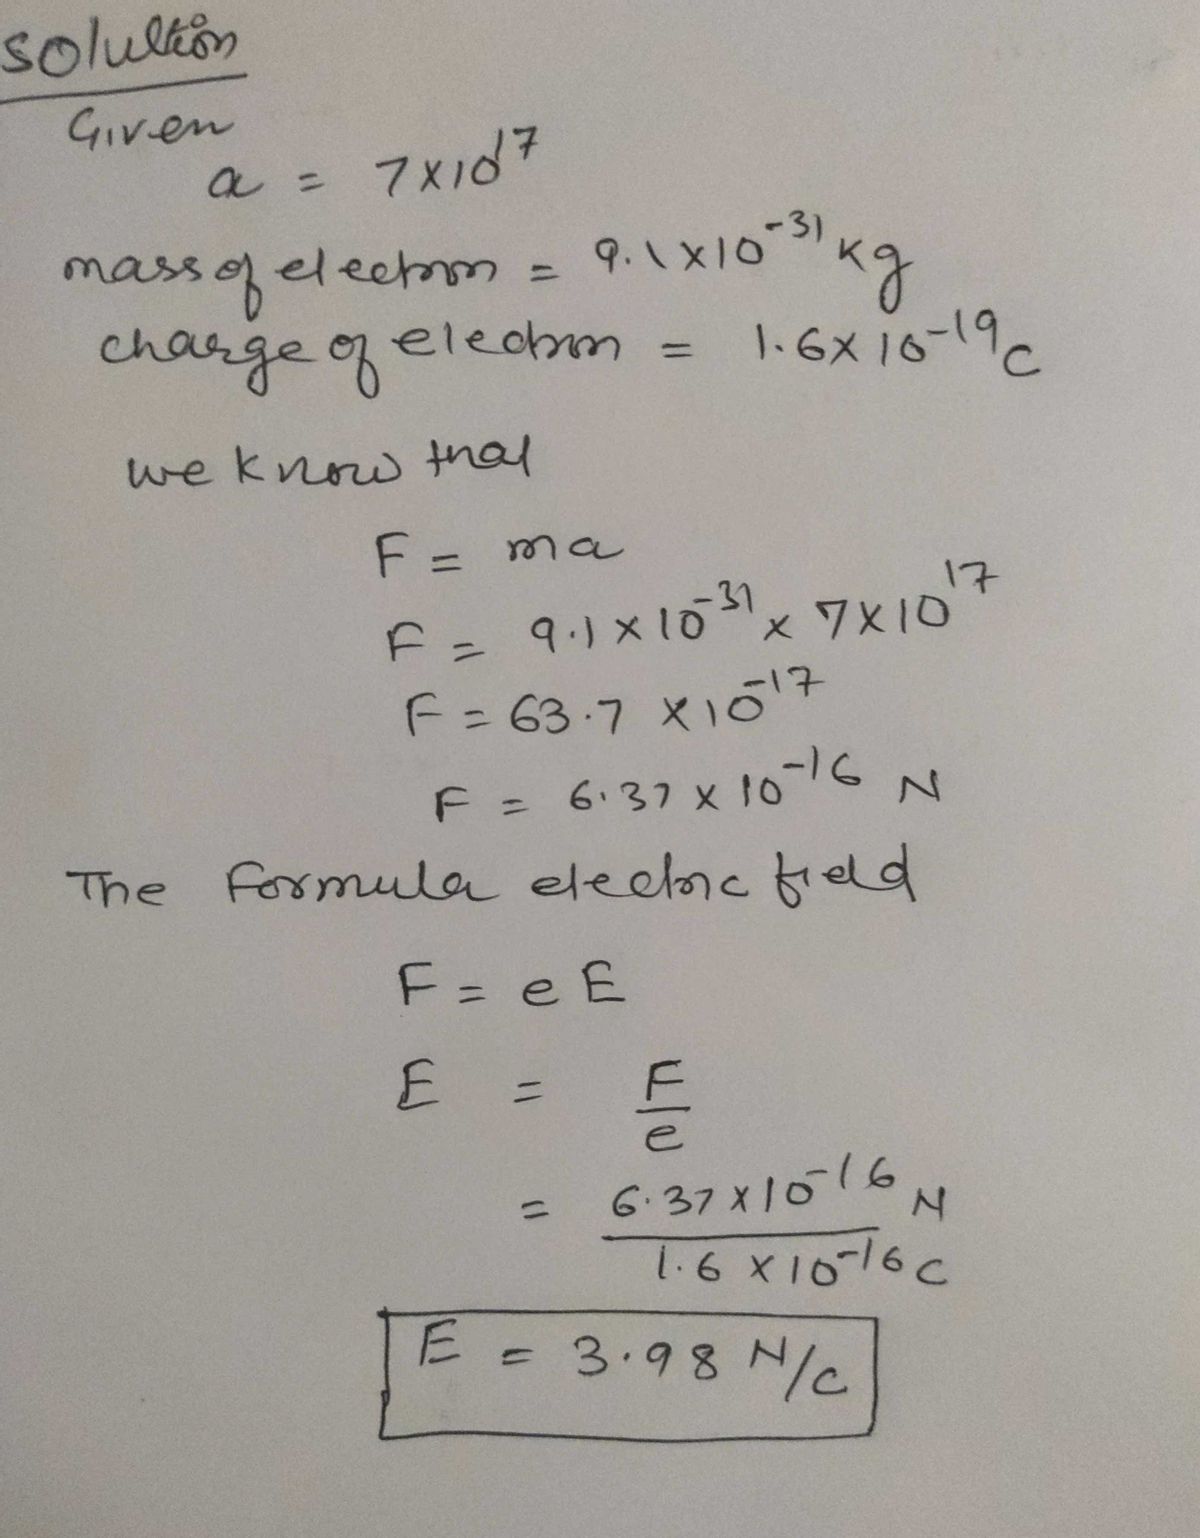 Solultion
Given
a = 7×10¹⁷
mass of electron = 9.1×10⁻³¹ kg
charge of electron = 1.6×10⁻¹⁹C
we know that
F = ma
F = 9.1×10⁻³¹ × 7×10¹⁷
F = 63.7 ×10⁻¹⁷
F = 6.37 × 10⁻¹⁶ N
The formula electric field
F = e E
E = F/e
= 6.37×10⁻¹⁶ N / 1.6 ×10⁻¹⁶ C
E = 3.98 N/C